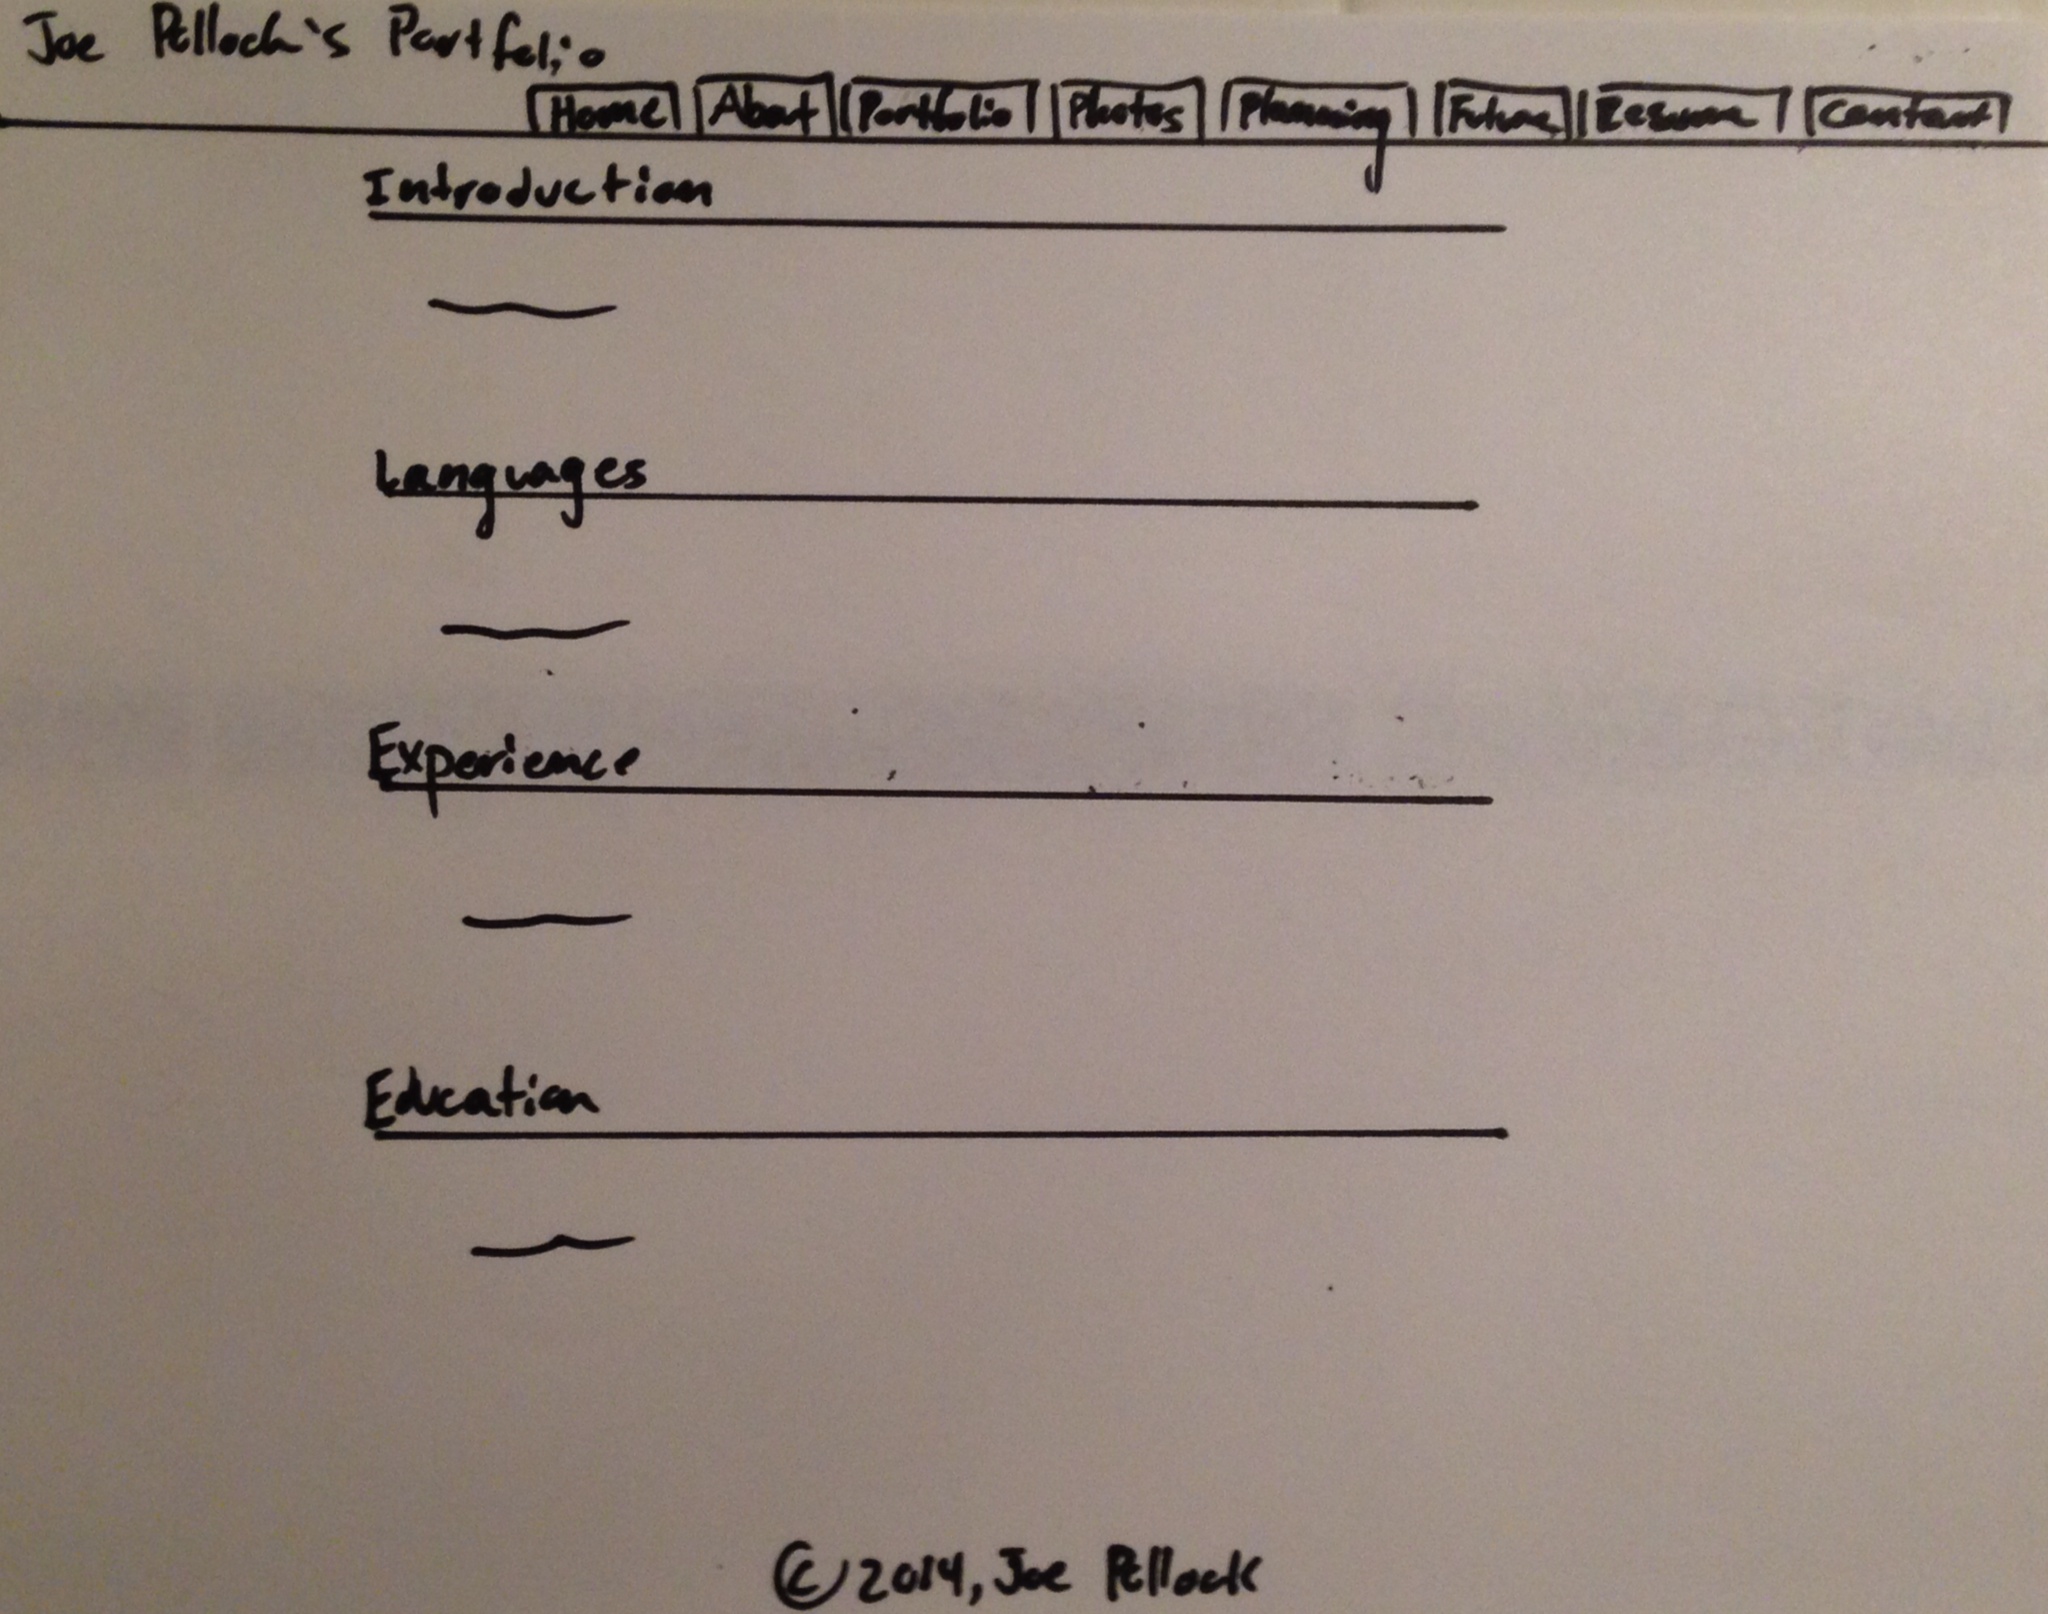 Joe Pollock's Portfolio
Home About Portfolio Photos Planning Future Resume Contact
Introduction
Languages
Experience
Education
©2014, Joe Pollock